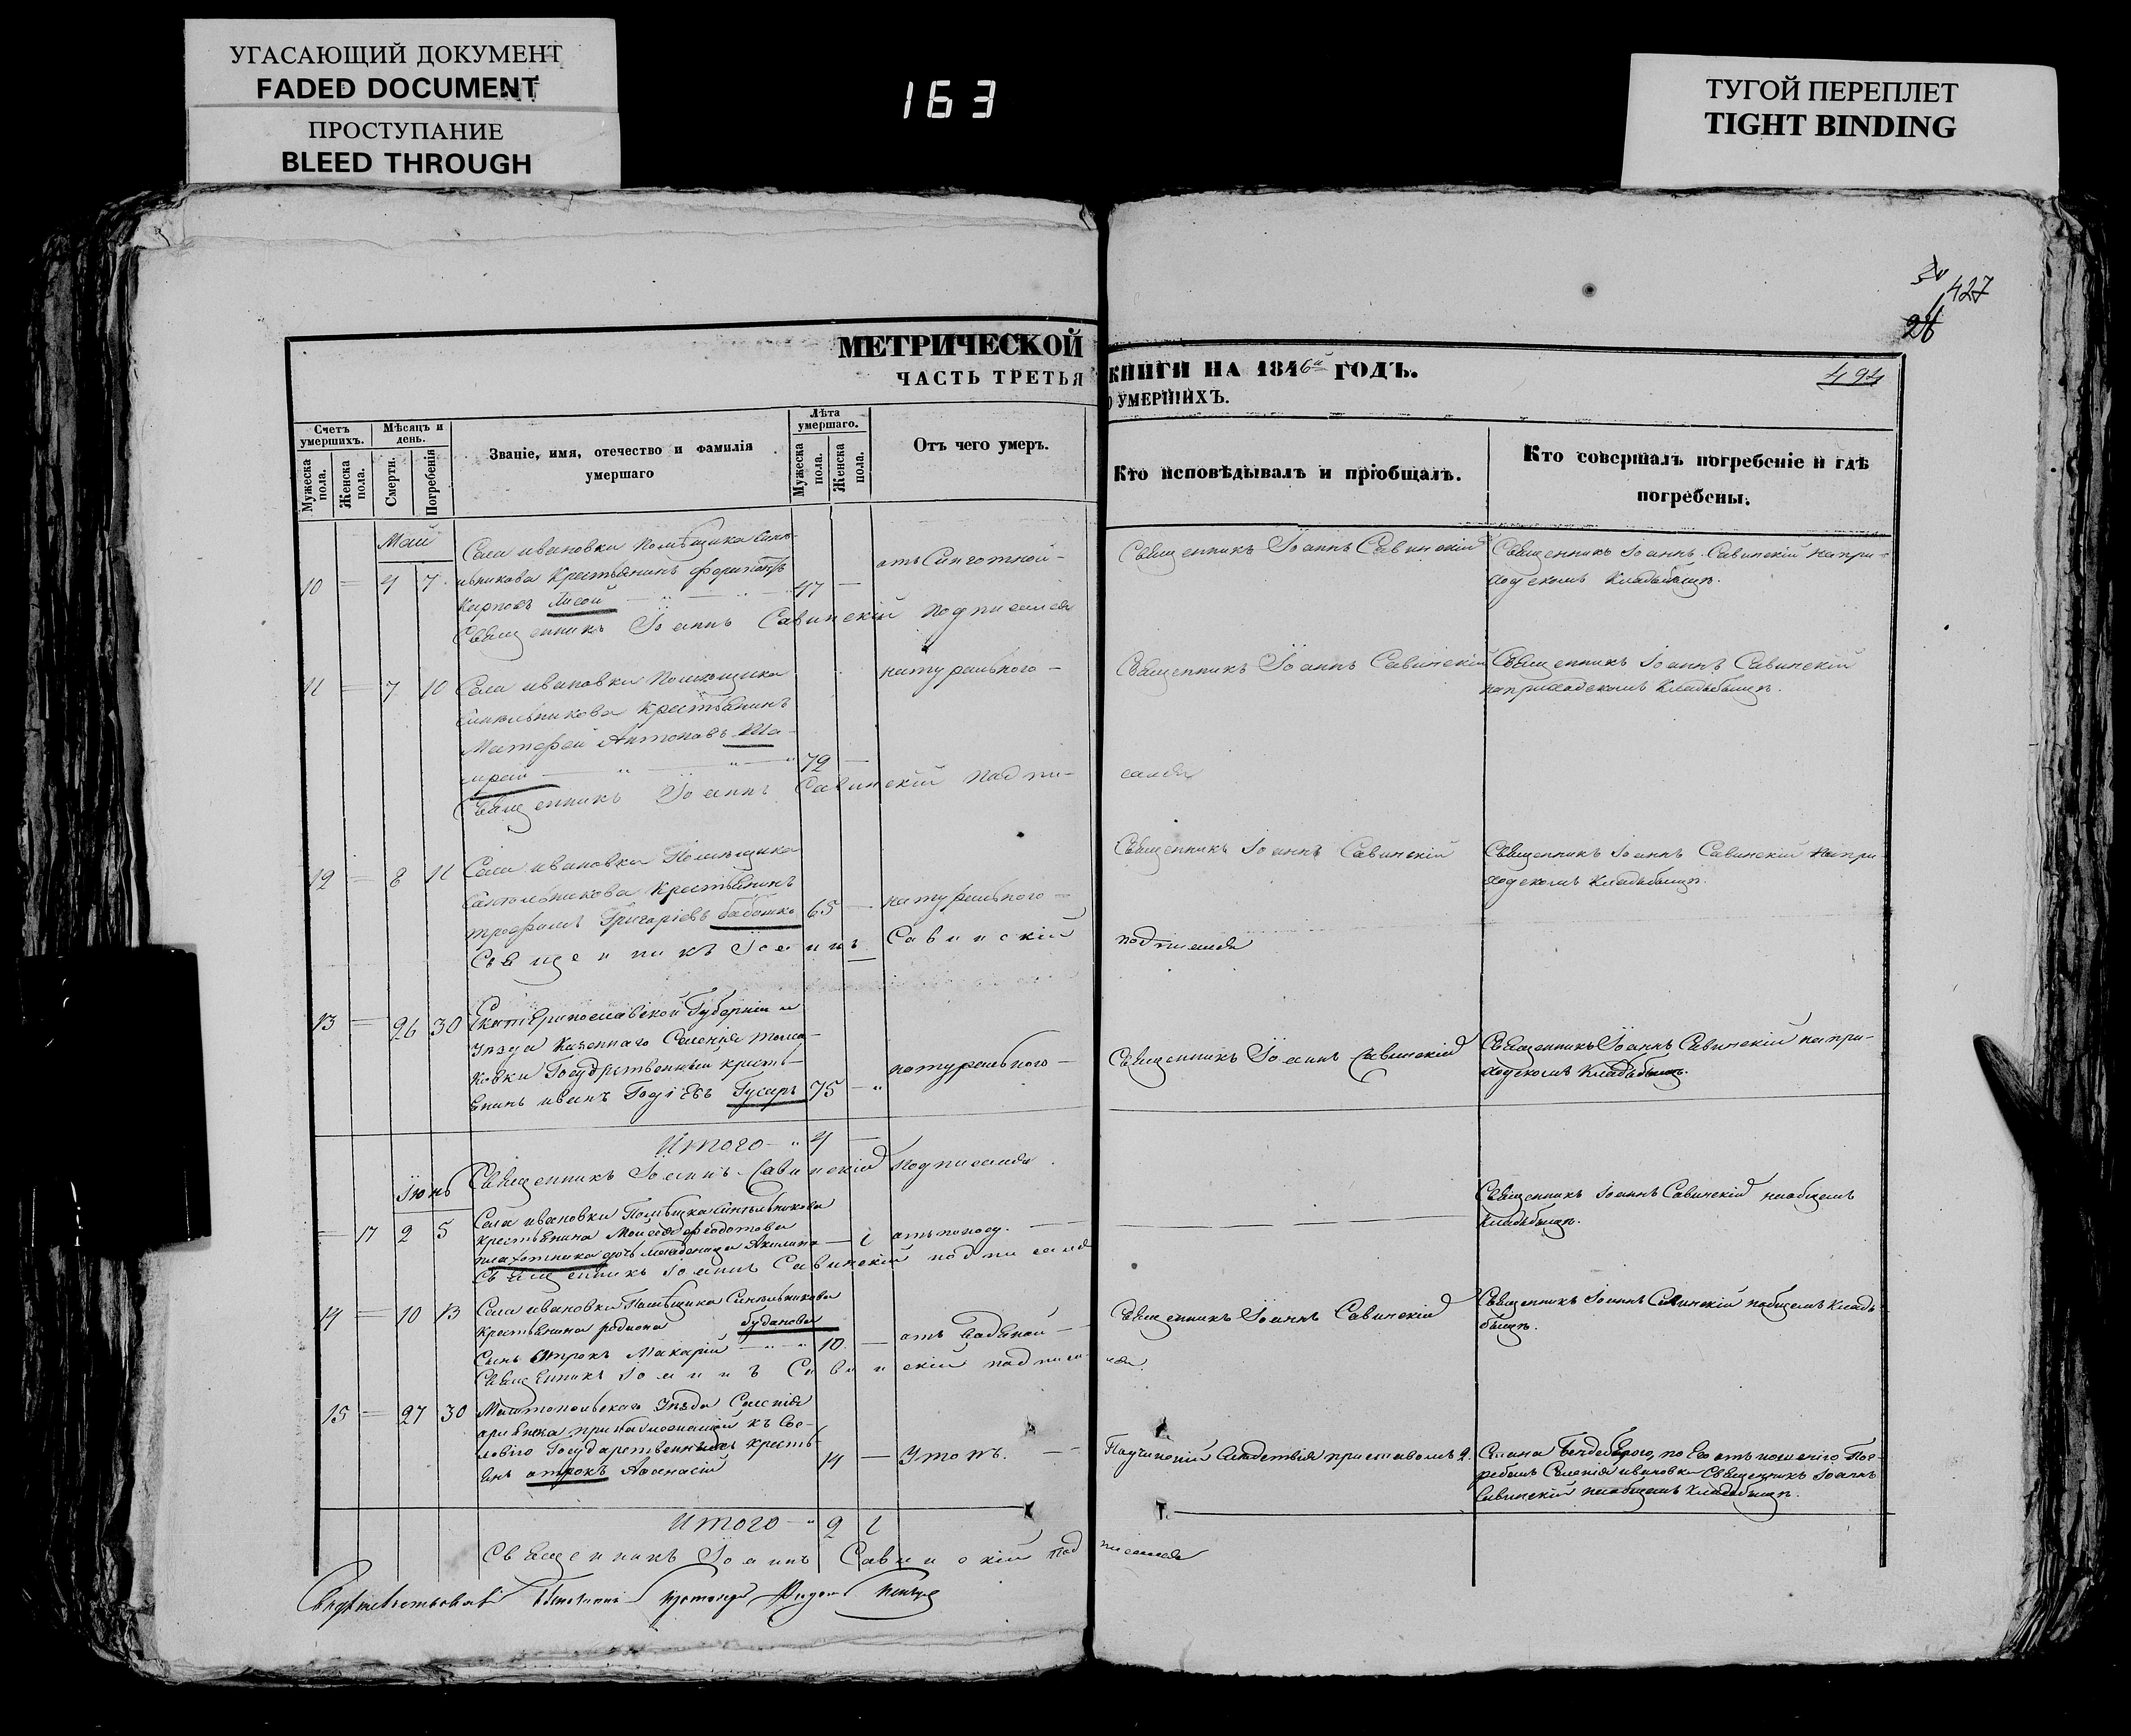 УГАСАЮЩИЙ ДОКУМЕНТ
FADED DOCUMENT
ПРОСТУПАНИЕ
BLEED THROUGH
163
ТУГОЙ ПЕРЕПЛЕТ
TIGHT BINDING
427
28
МЕТРИЧЕСКОЙ КНИГИ НА 1846й ГОДЪ.
494
ЧАСТЬ ТРЕТЬЯ О УМЕРШИХЪ.
Счетъ умершихъ.
Мужеска пола.
Женска пола.
Мѣсяцъ и день.
Смерти.
Погребенія
Званіе, имя, отечество и фамилія умершаго
Лѣта умершаго.
Мужеска пола.
Женска пола.
Отъ чего умеръ.
Кто исповѣдывалъ и пріобщалъ.
Кто совершалъ погребеніе и гдѣ погребены.
Май
10 — 4 7
Села ивановки Помѣщика Синѣ-
льникова Крестьянинъ
Карповъ Лисой 47 —
Священникъ Іоаннъ Савинскій
Священникъ Іоаннъ Савинскій на при-
ходскомъ Кладбищѣ.
Священникъ Іоаннъ Савинскій подписался
11 — 7 10
Села ивановки Помѣщика
Синельникова Крестьянинъ
Матфей Антоновъ
79 —
натурального —
Священникъ Іоаннъ Савинскій
Священникъ Іоаннъ Савинскій
на приходскомъ Кладбищѣ.
Священникъ Іоаннъ Савинскій подпи-
сался
12 — 8 11
Села ивановки Помѣщика
Синельникова Крестьянинъ
трофимъ Григоріевъ бабошко 65 —
натурального —
Священникъ Іоаннъ Савинскій
Священникъ Іоаннъ Савинскій на при
ходскомъ Кладбищѣ.
Священникъ Іоаннъ Савинскій
подписался
13 — 26 30
Екатеринославской Губерніи и
Уѣзда Казеннаго Селенія
Государственный кресть-
янинъ иванъ Гусаръ 75 — "
натурального —
Священникъ Іоаннъ Савинскій
Священникъ Іоаннъ Савинскій на при-
ходскомъ Кладбищѣ.
Итого — " 4 —
Священникъ Іоаннъ Савинскій подписался.
Іюнь
— 17 2 5
Села ивановки Помѣщика Синельникова
крестьянина Моисея Феодотова
плахотника дочь младеница Акилина — 1
Священникъ Іоаннъ Савинскій на общемъ
Кладбищѣ.
Священникъ Іоаннъ Савинскій подписался
14 — 10 13
Села ивановки Помѣщика Синельникова
Крестьянина родиона буданова
Сынъ отрокъ Макарій — " — " 10. —
отъ
Священникъ Іоаннъ Савинскій
Священникъ Іоаннъ Савинскій на общемъ Клад-
бищѣ.
Священникъ Іоаннъ Савинскій подписался.
15 — 27 30
Уѣзда Селенія
Государственныхъ кресть-
янъ отрокъ Афанасій 14 —
Утопъ. —
приставомъ 2.
Стана
Селенія ивановки Священникъ Іоаннъ
Савинскій на общемъ Кладбищѣ.
Итого — " 2 1
Священникъ Іоаннъ Савинскій подписался